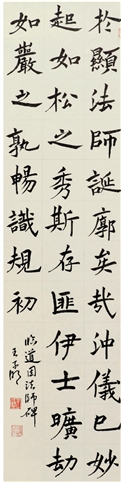 於顯法師誕廓矣哉沖儀已妙
起如松之秀斯存匪伊士曠劫
如巖之孰暢識規初
臨道因法師碑